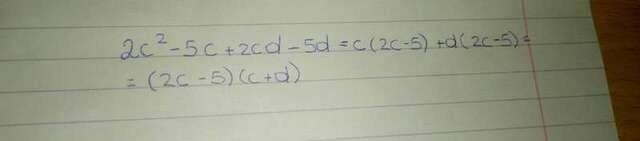 2c² - 5c + 2cd - 5d = c(2c-5) + d(2c-5) =
= (2c - 5)(c+d)